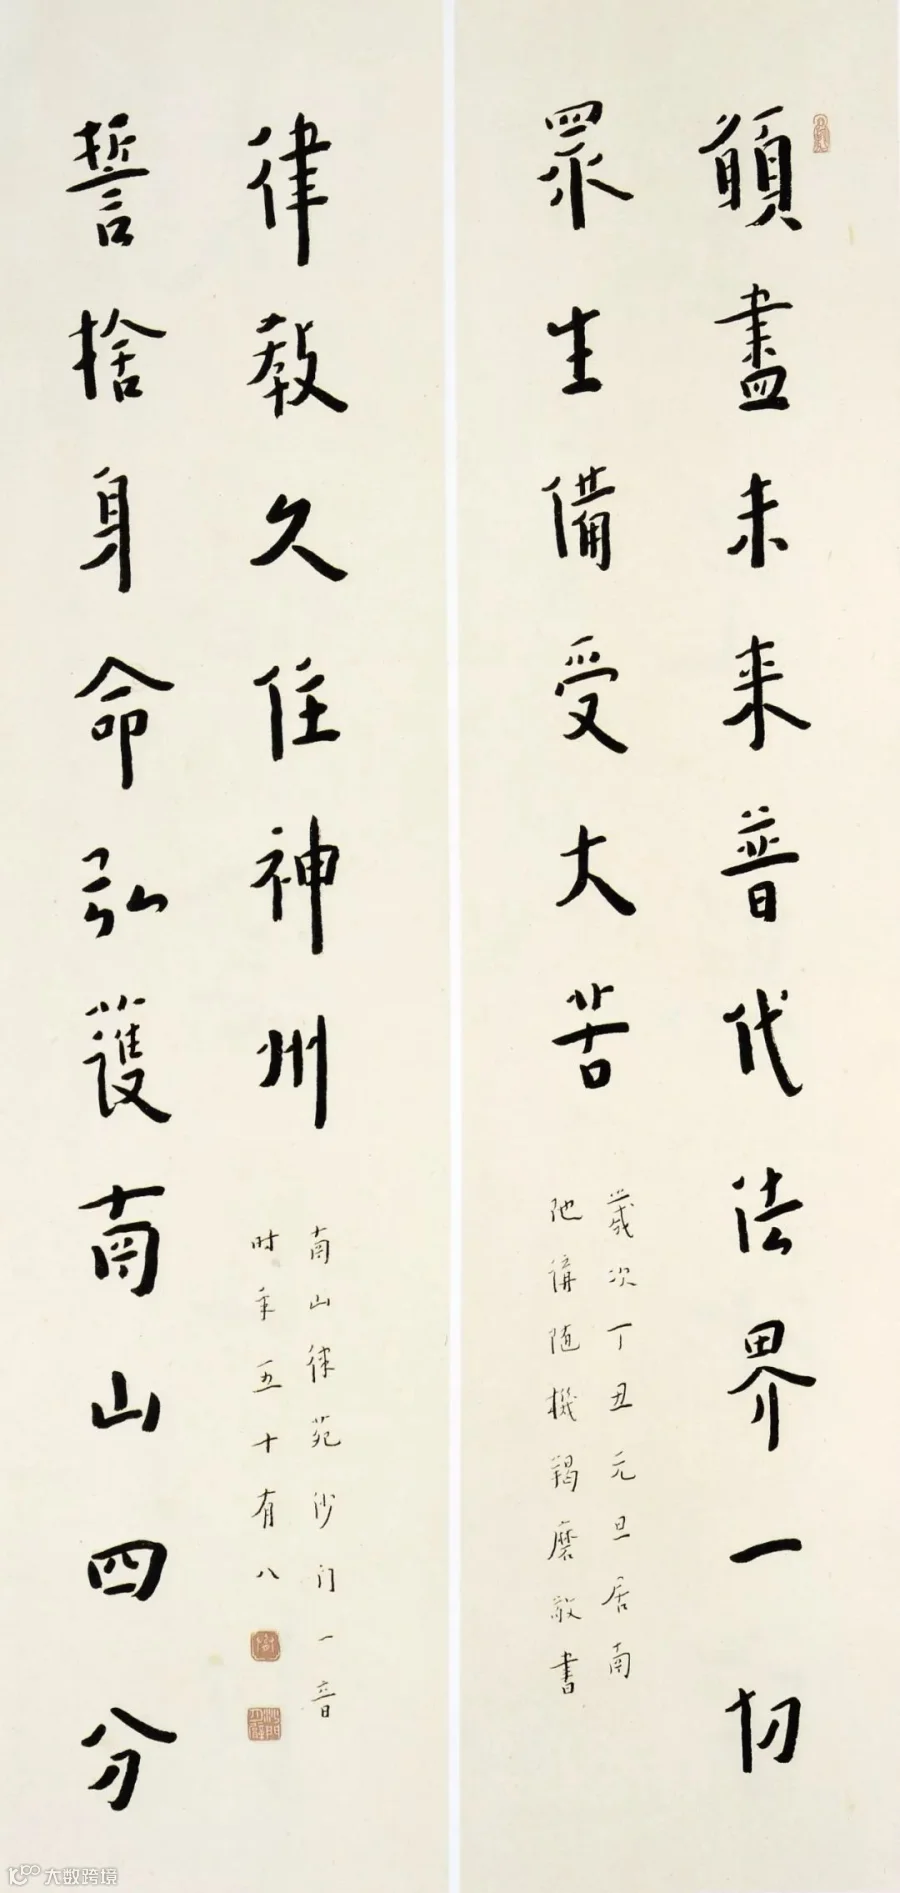 願盡未来普代法界一切
眾生備受大苦
歲次丁丑元旦居南
陀講随機羯磨敬書
誓捨身命弘護南山四分
律教久住神州
南山律苑沙门一音
时年五十有八
大数跨境